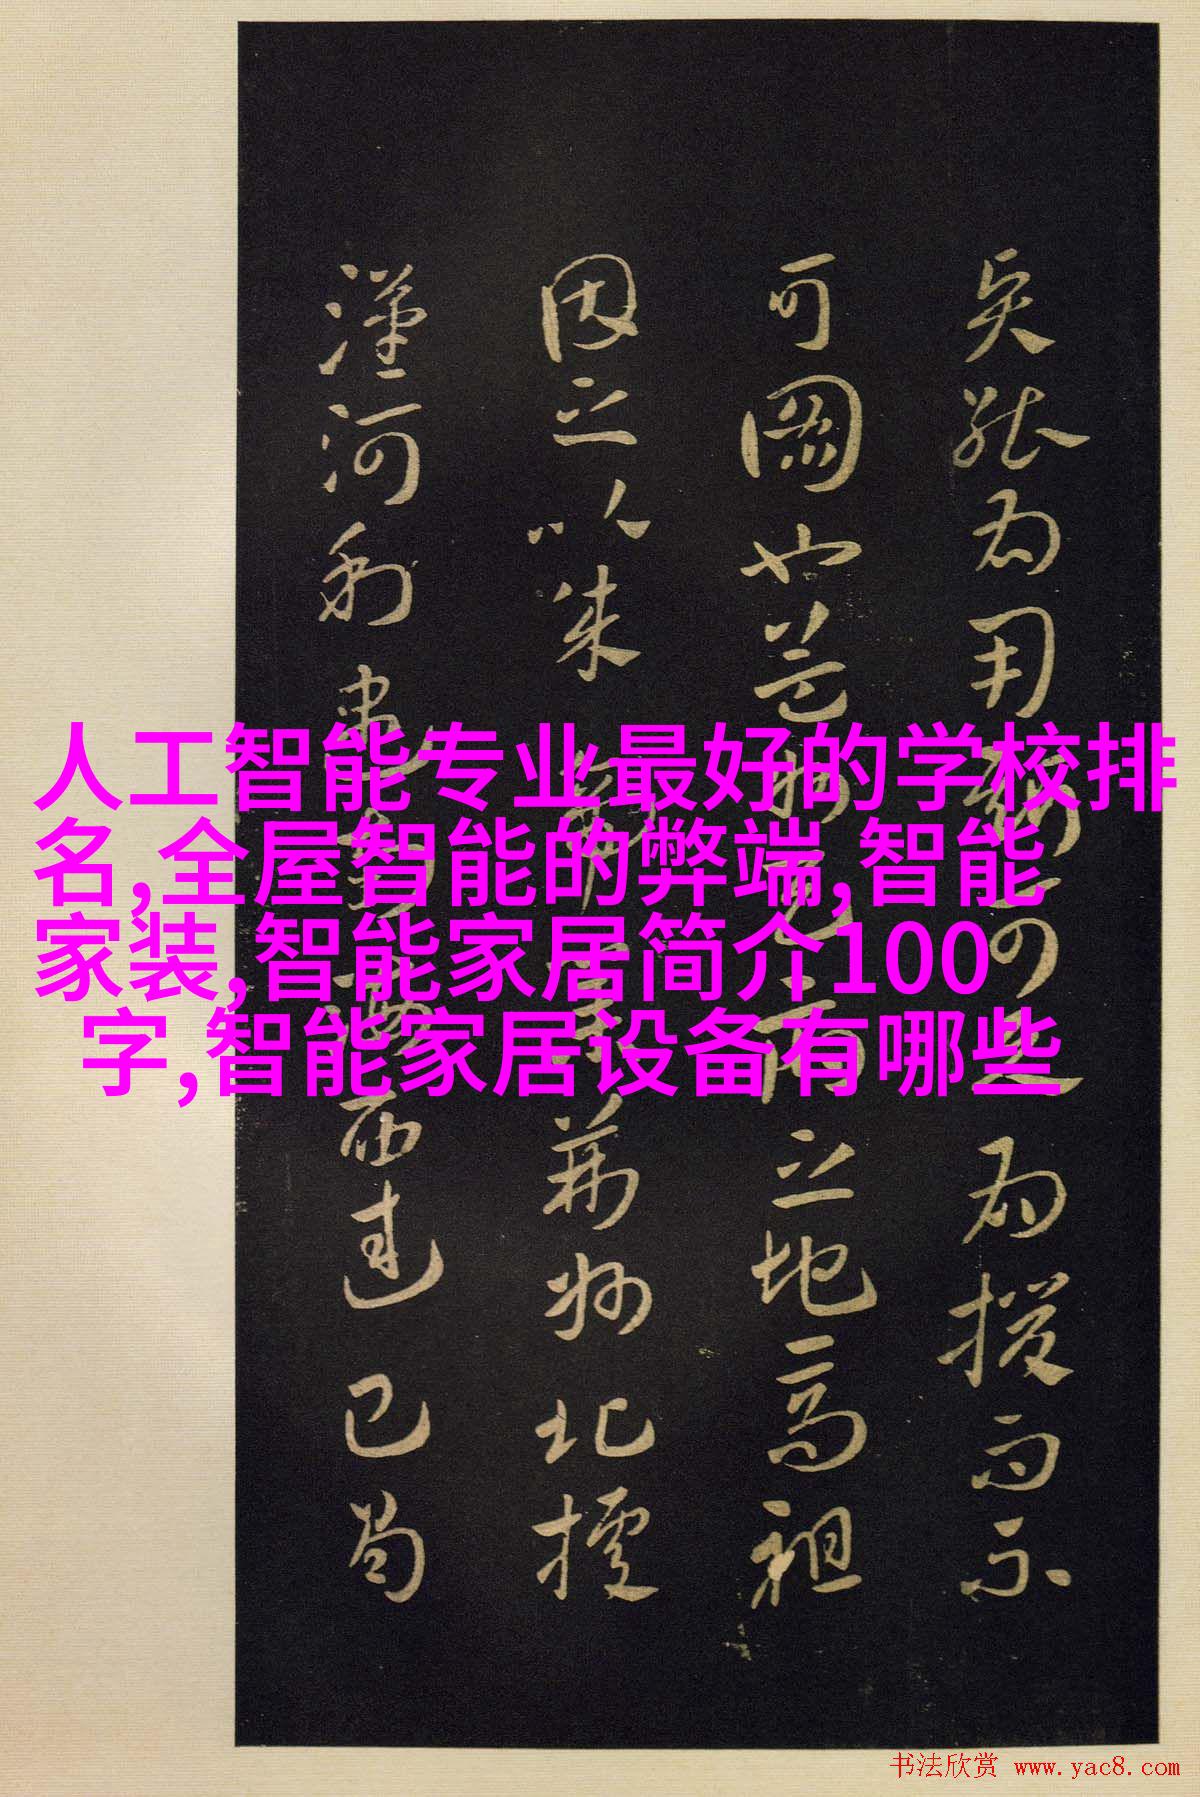 人工智能专业最好的学校排
名,全屋智能的弊端,智能
家装,智能家居简介100
字,智能家居设备有哪些
能为用可为援而不
可图也之地高祖
因之以荆州北据
汉河利西巴蜀
书法欣赏 www.yac8.com